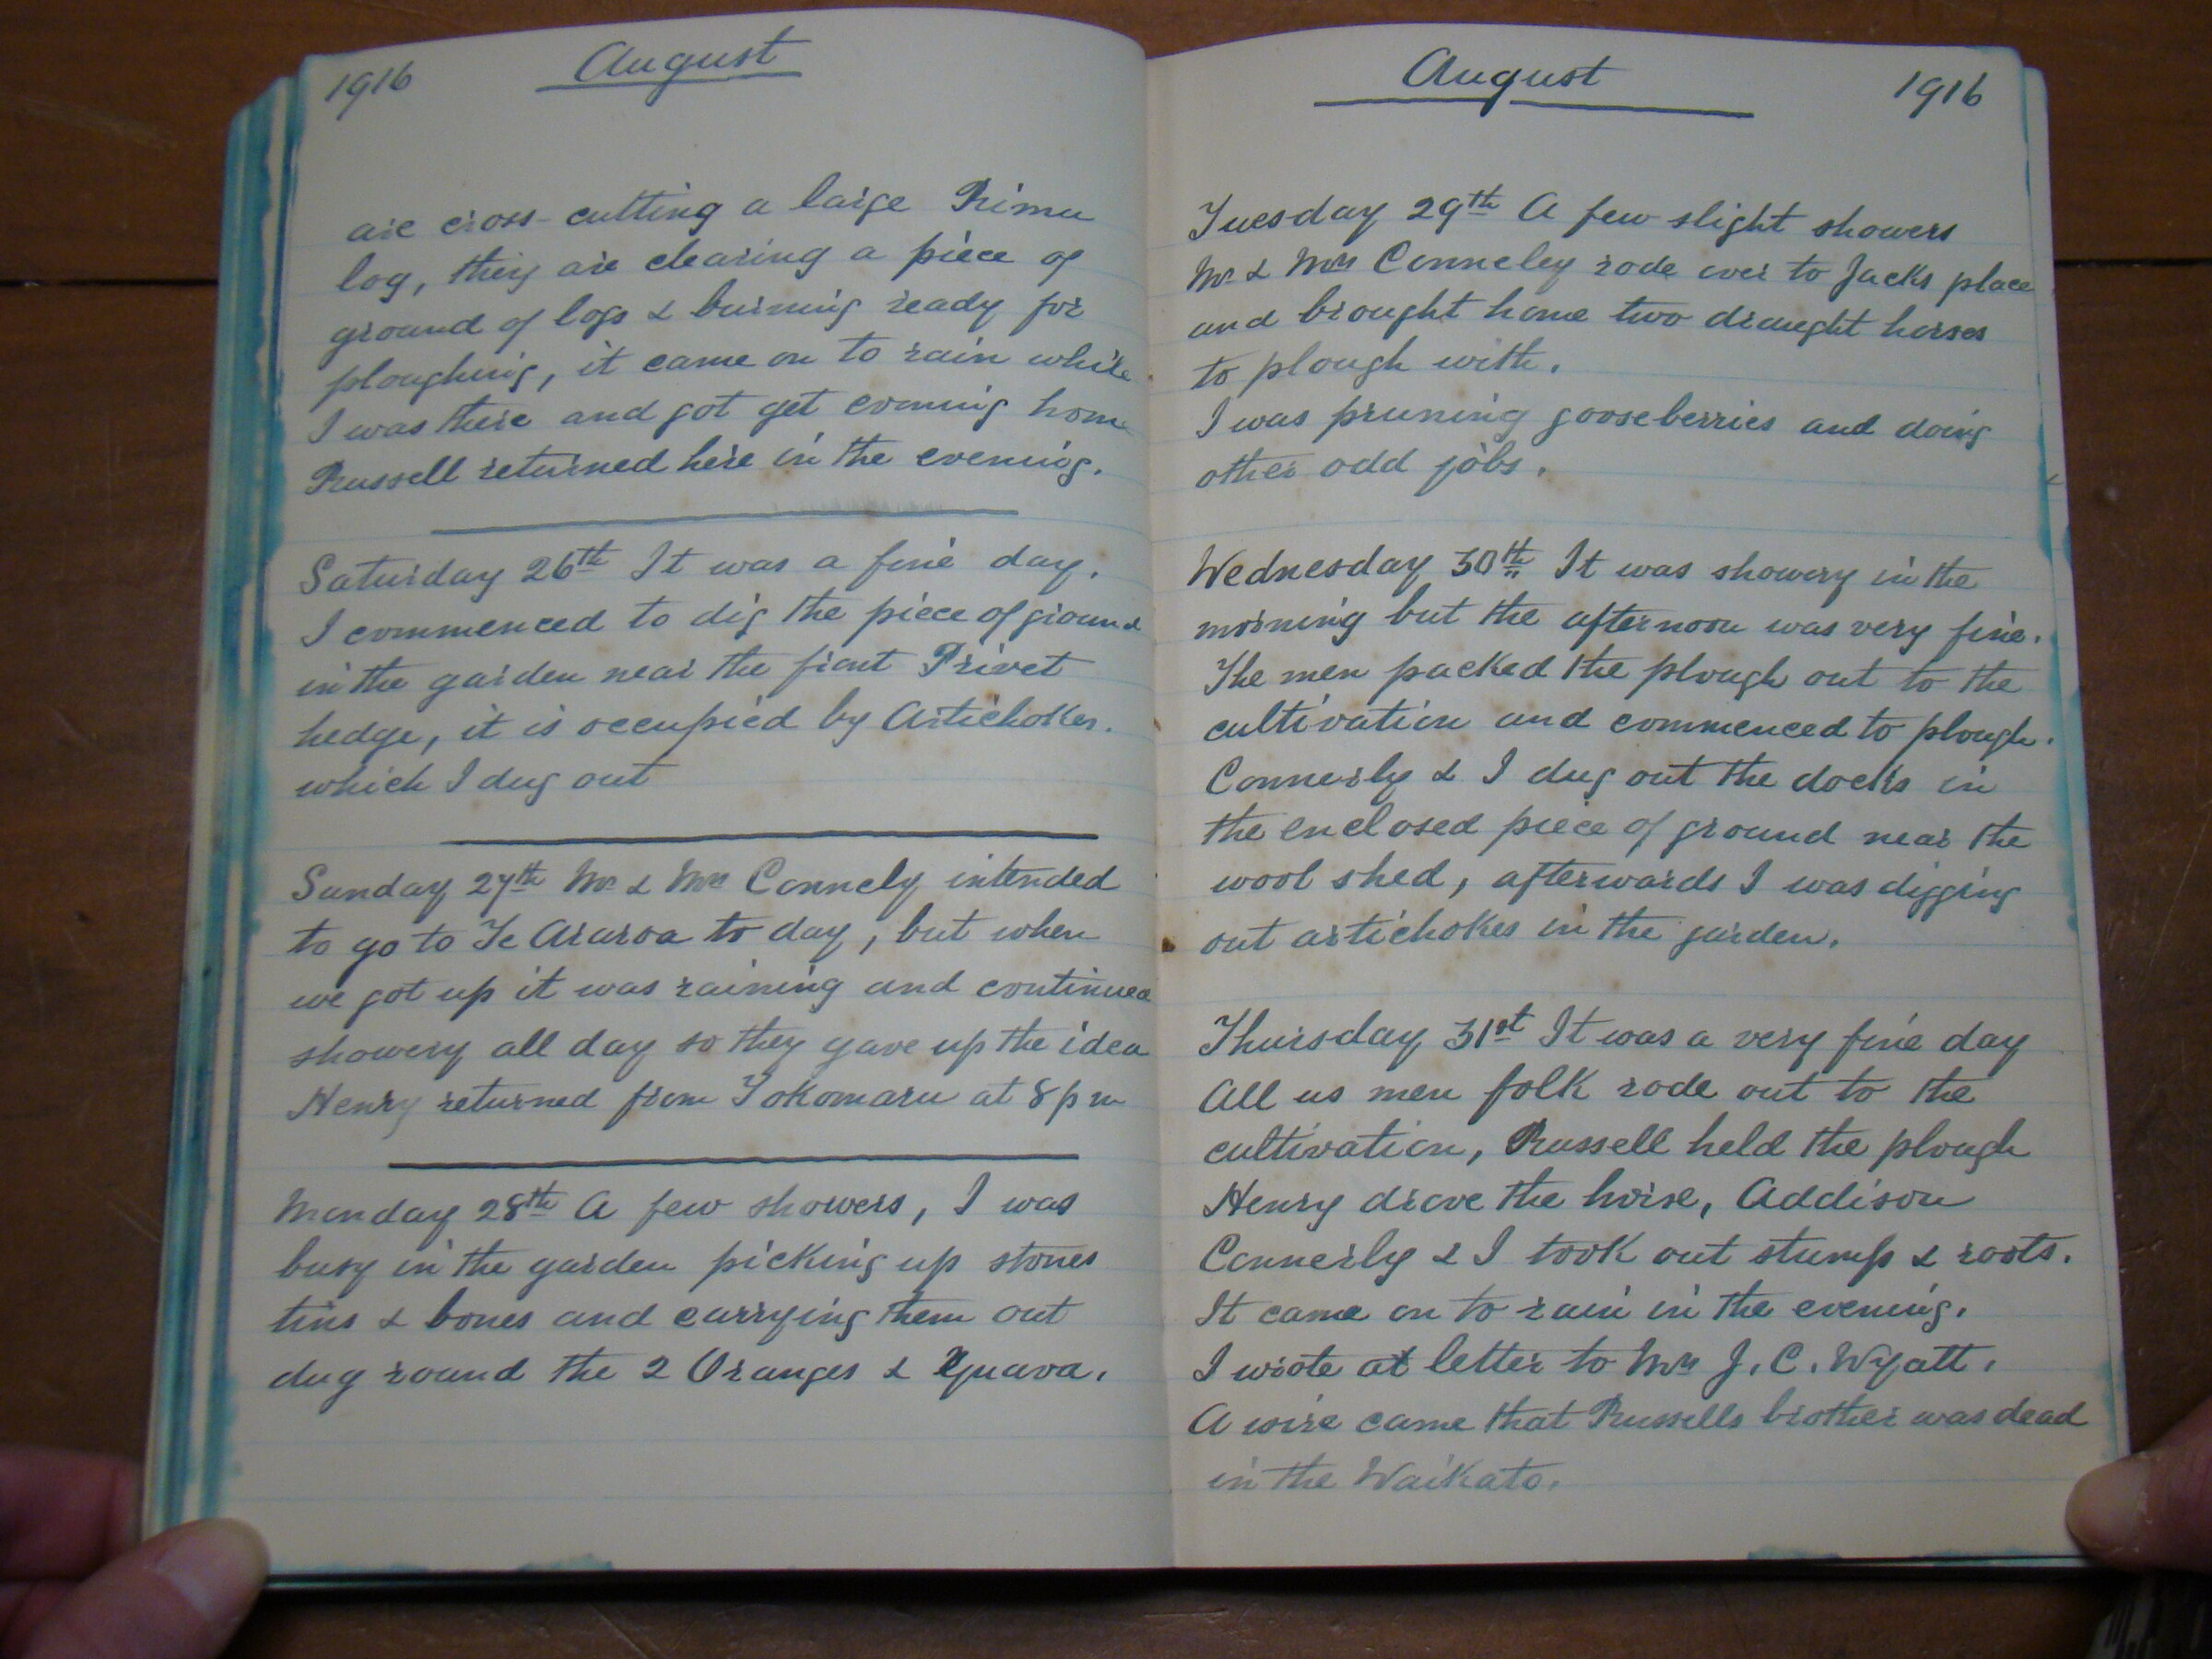 1916 August
are cross-cutting a large Rimu
log, they are clearing a piece of
ground of logs & burning ready for
ploughing, it came on to rain while
I was there and got get coming home
Russell returned here in the evening.
Saturday 26th It was a fine day.
I commenced to dig the piece of ground
in the garden near the front Privet
hedge, it is occupied by Artichokes.
which I dug out
Sunday 27th Mr & Mrs Connely intended
to go to Te Araroa to day, but when
we got up it was raining and continued
showery all day so they gave up the idea
Henry returned from Tokomaru at 8 p m
Monday 28th A few showers, I was
busy in the garden picking up stones
tins & bones and carrying them out
dug round the 2 Oranges & Guava.
August 1916
Tuesday 29th A few slight showers
Mr & Mrs Conneley rode over to Jacks place
and brought home two draught horses
to plough with.
I was pruning gooseberries and doing
other odd jobs.
Wednesday 30th It was showery in the
morning but the afternoon was very fine.
The men packed the plough out to the
cultivation and commenced to plough.
Connerly & I dug out the docks in
the enclosed piece of ground near the
wool shed, afterwards I was digging
out artichokes in the garden.
Thursday 31st It was a very fine day
All us men folk rode out to the
cultivation, Russell held the plough
Henry drove the horse, Addison
Connerly & I took out stumps & roots.
It came on to rain in the evening.
I wrote a letter to Mrs J. C. Wyatt.
A wire came that Russells brother was dead
in the Waikato.